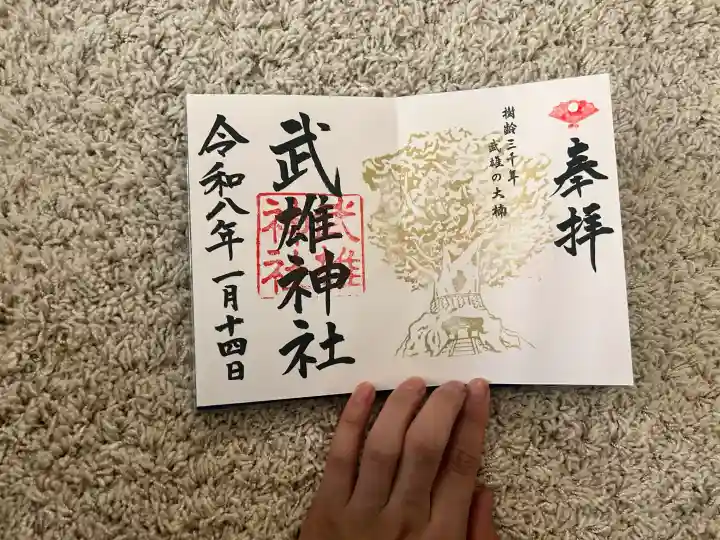 奉拝
樹齢三千年
武雄の大楠
武雄神社
武雄
神社
令和八年一月十四日